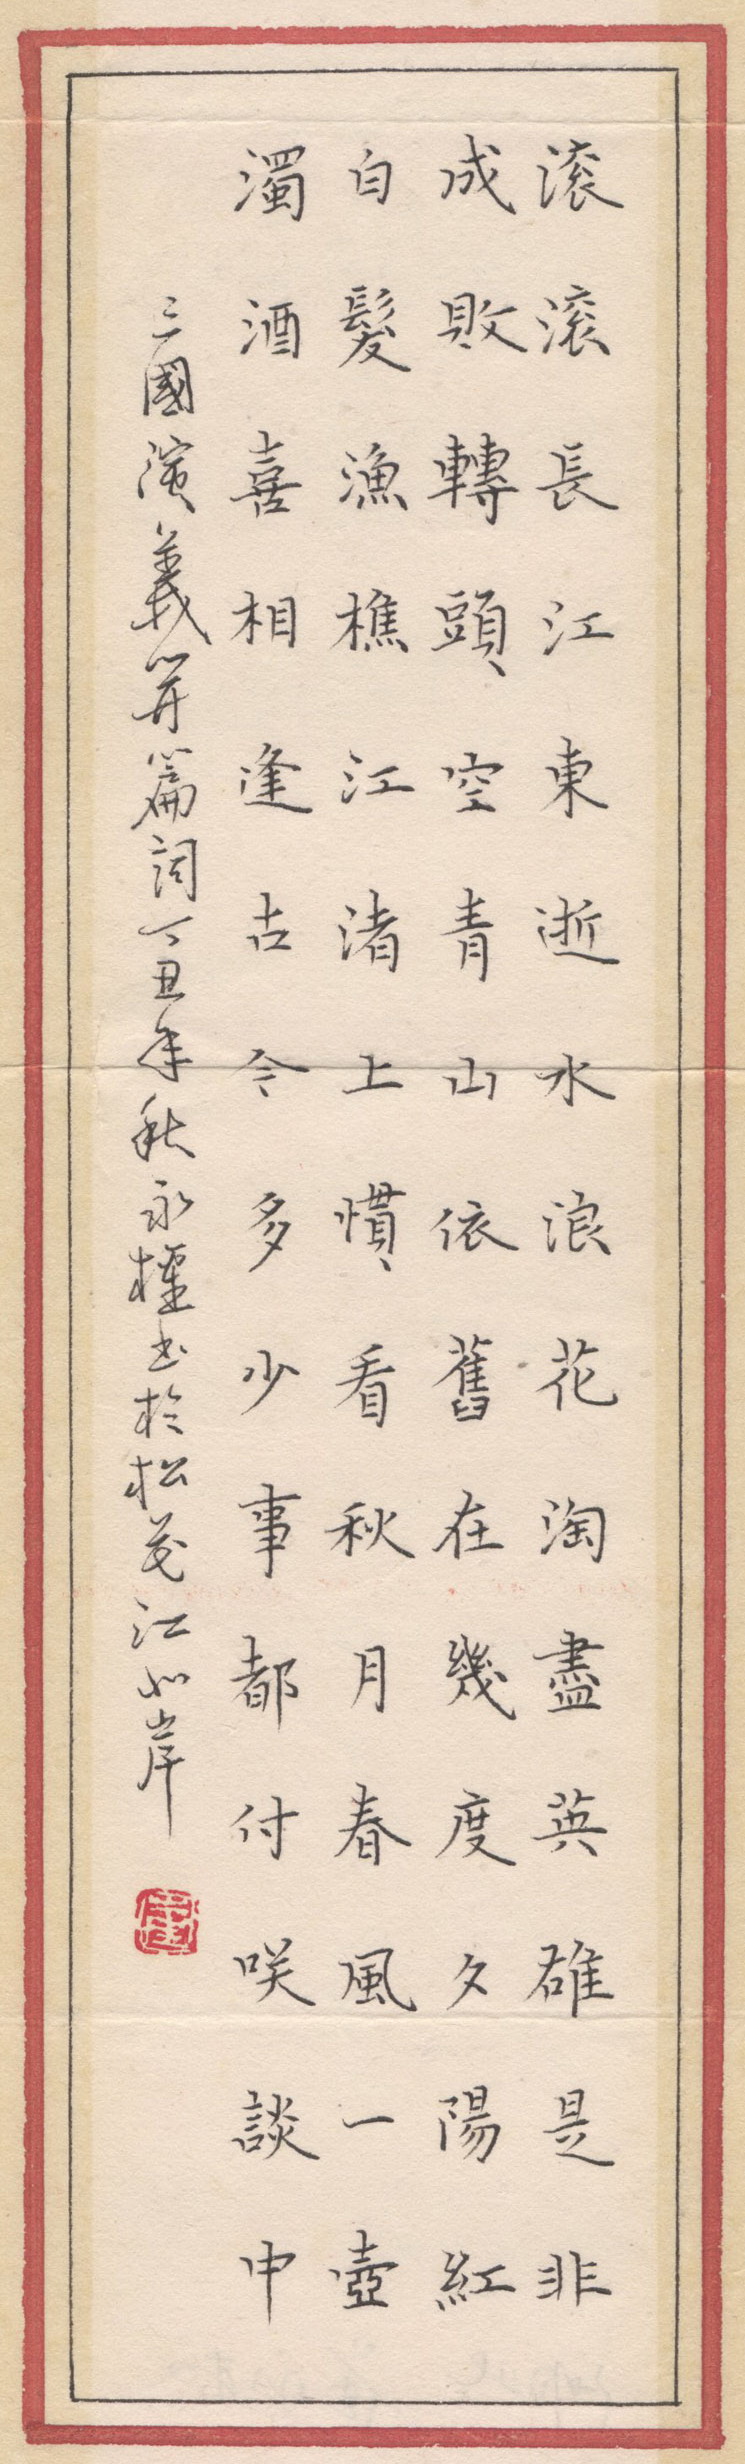 滚滚長江東逝水浪花淘盡英雄是非
成敗轉頭空青山依舊在幾度夕陽紅
白髮漁樵江渚上慣看秋月春風一壺
濁酒喜相逢古今多少事都付咲談中
三國演義開篇詞丁丑年秋永權书於松花江北岸